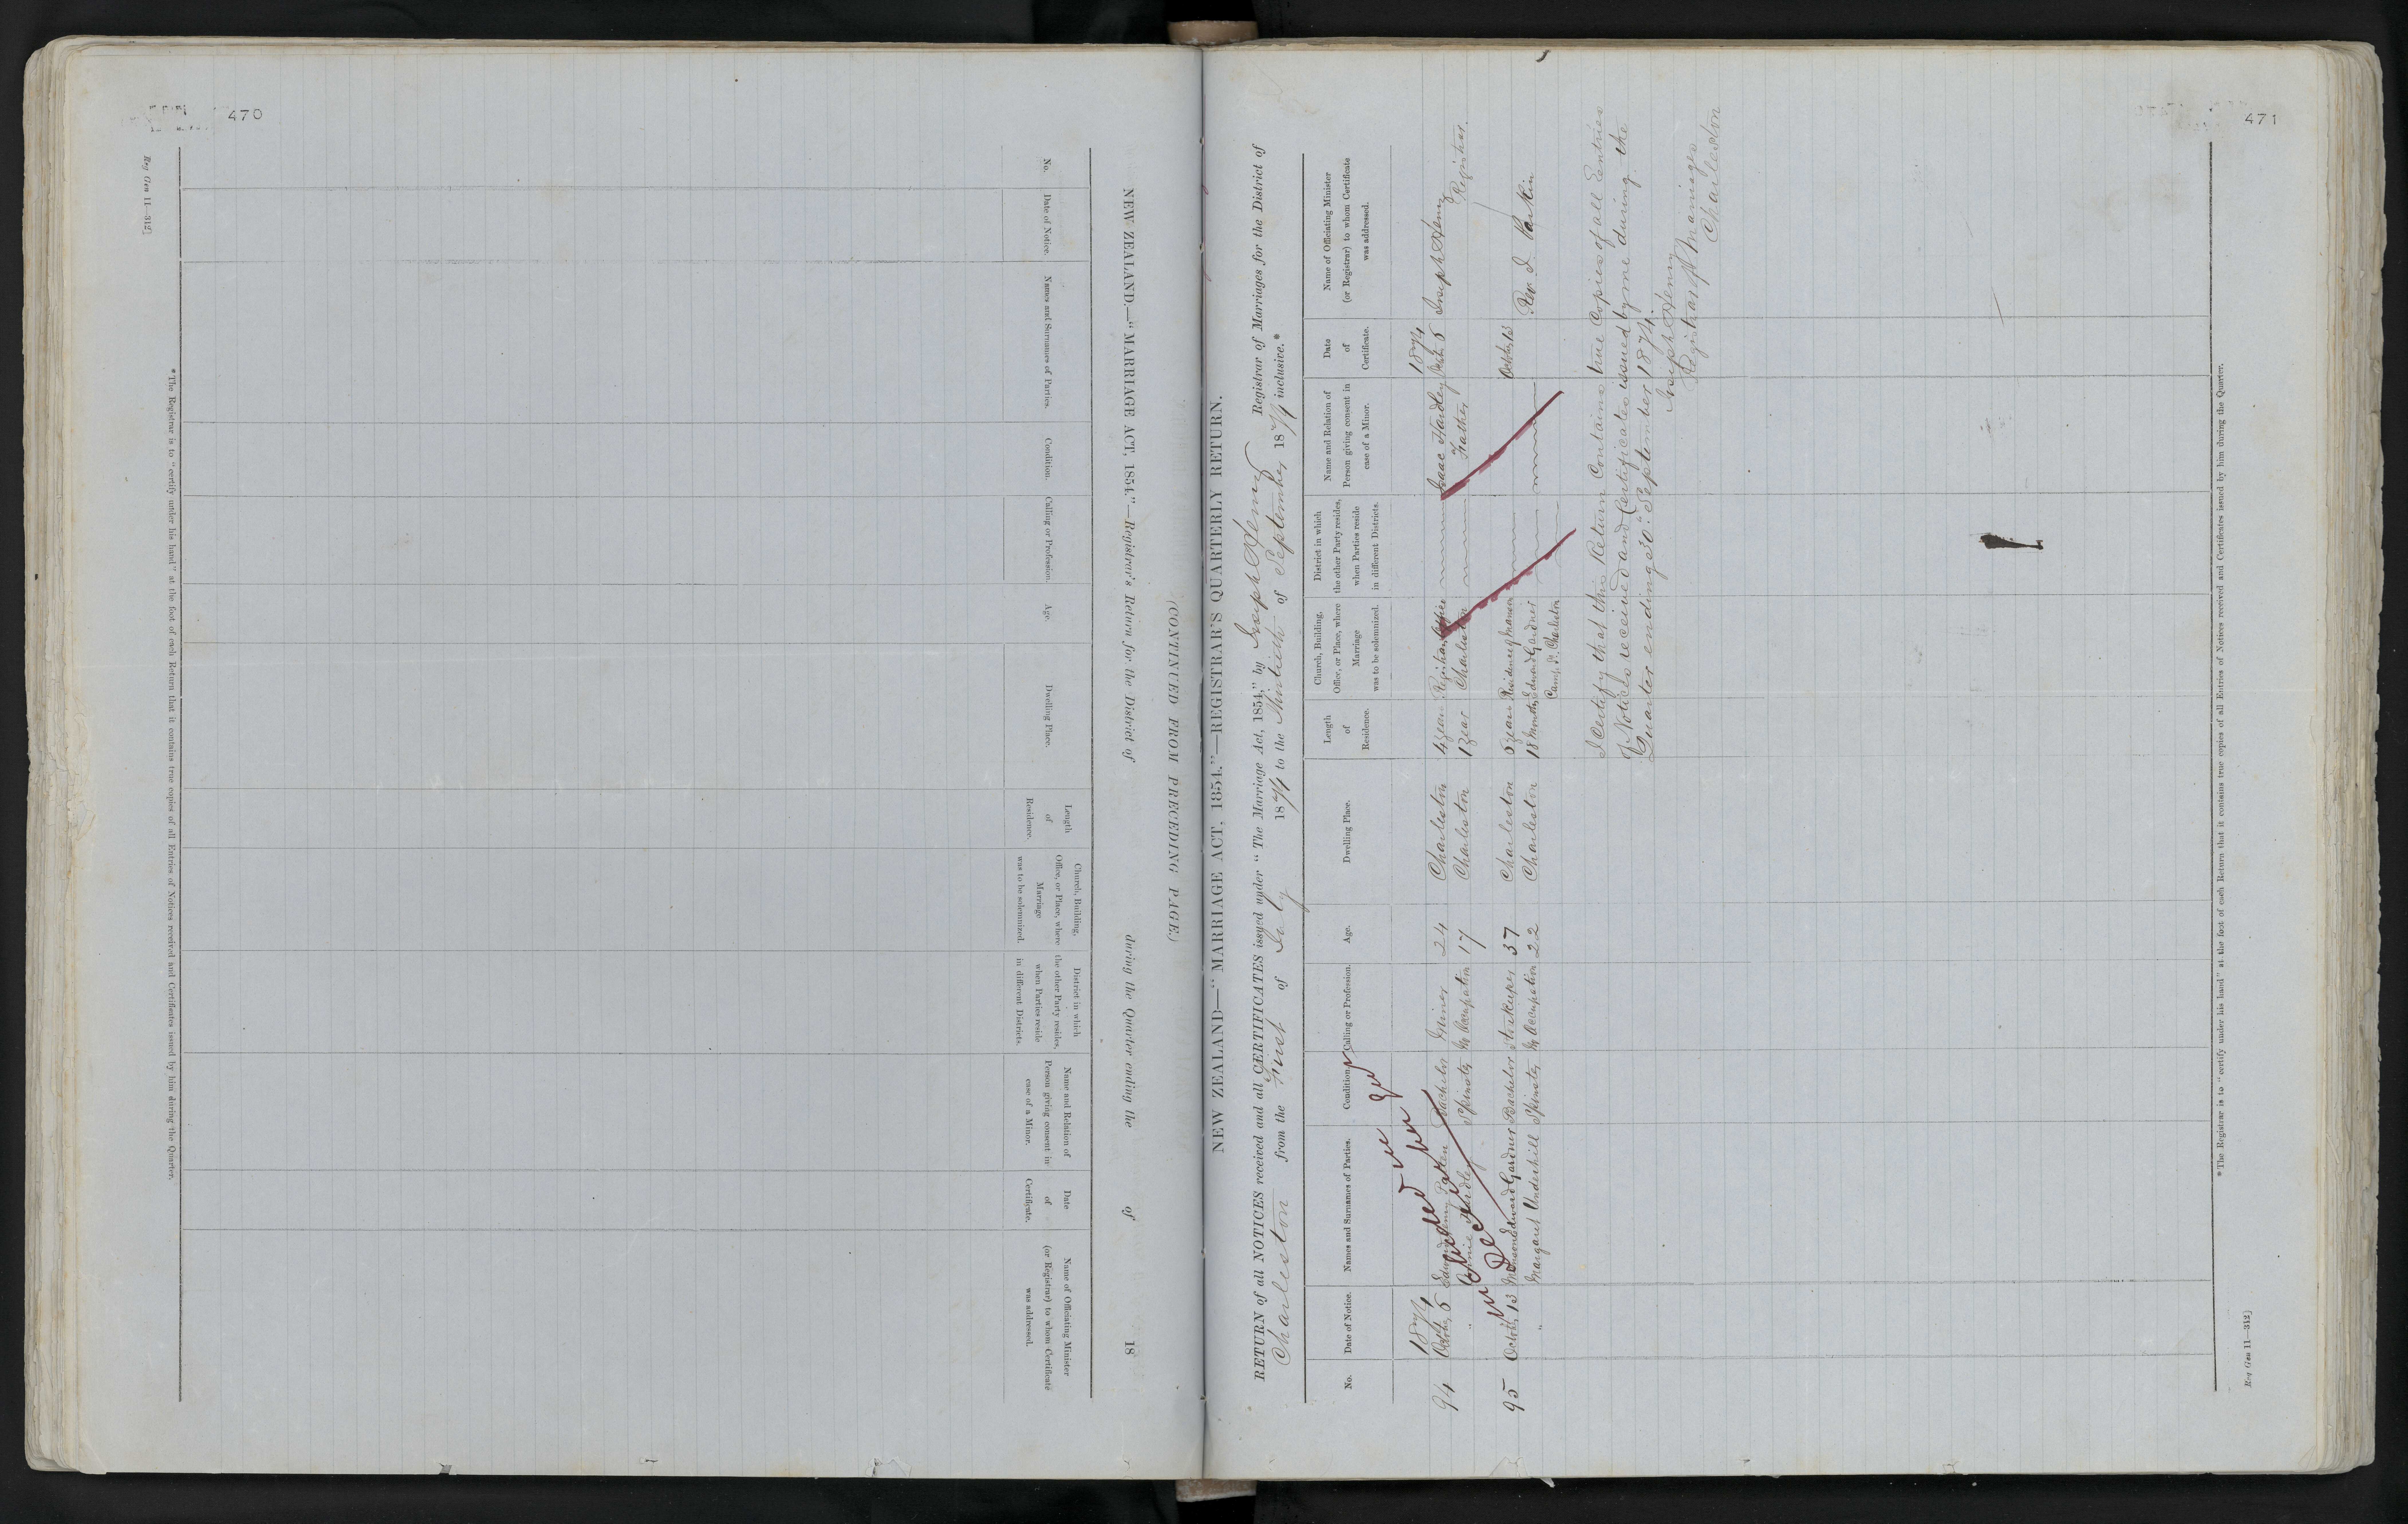 470
Reg Gen 11—312]
NEW ZEALAND.—"MARRIAGE ACT, 1854."—Registrar's Return for the District of during the Quarter ending the of 18
(CONTINUED FROM PRECEDING PAGE.)
No.
Date of Notice.
Names and Surnames of Parties.
Condition.
Calling or Profession.
Age.
Dwelling Place.
Length
of
Residence.
Church, Building,
Office, or Place, where
Marriage
was to be solemnized.
District in which
the other Party resides,
when Parties reside
in different Districts.
Name and Relation of
Person giving consent in
case of a Minor.
Date
of
Certificate.
Name of Officiating Minister
(or Registrar) to whom Certificate
was addressed.
* The Registrar is to "certify under his hand" at the foot of each Return that it contains true copies of all Entries of Notices received and Certificates issued by him during the Quarter.
471
NEW ZEALAND—"MARRIAGE ACT, 1854."—REGISTRAR'S QUARTERLY RETURN.
RETURN of all NOTICES received and all CERTIFICATES issued under "The Marriage Act, 1854," by Joseph Henry Registrar of Marriages for the District of
Charleston from the First of July 1874 to the Thirtieth of September 1874 inclusive.*
No.
Date of Notice.
Names and Surnames of Parties.
Condition.
Calling or Profession.
Age.
Dwelling Place.
Length
of
Residence.
Church, Building,
Office, or Place, where
Marriage
was to be solemnized.
District in which
the other Party resides,
when Parties reside
in different Districts.
Name and Relation of
Person giving consent in
case of a Minor.
Date
of
Certificate.
Name of Officiating Minister
(or Registrar) to whom Certificate
was addressed.
1874 1874
94 October 5 Edwin Henry Bachelor Miner 24 Charleston 4 years Registrars Office Isaac Hardley October 5 Joseph Henry
" Hardley Spinster No Occupation 17 Charleston 1 year Charleston Father Registrar.
included in
Decr
95 October 13 Edward Gardner Bachelor Storekeeper 37 Charleston 5 years Residence of October 13 Rev. J. Parkin
" Margaret Underhill Spinster No Occupation 22 Charleston 18 Months Edward Gardner
Camp St. Charleston
I Certify that this Return Contains true Copies of all Entries
of Notices received and Certificates issued by me during the
Quarter ending 30th September 1874.
Joseph Henry
Registrar of Marriages
Charleston
* The Registrar is to "certify under his hand" at the foot of each Return that it contains true copies of all Entries of Notices received and Certificates issued by him during the Quarter.
Reg Gen 11—312]